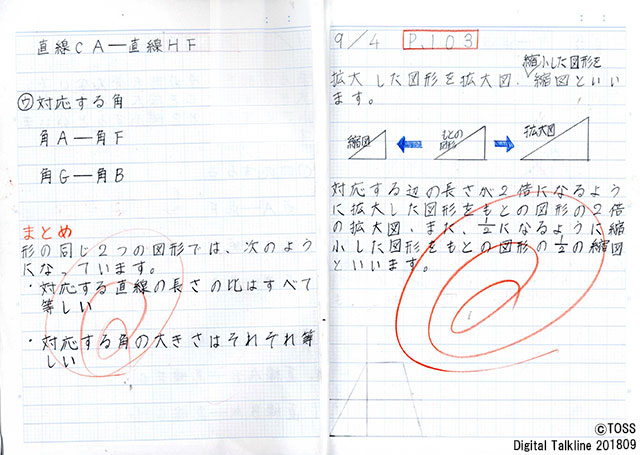 直線CA―直線HF
㋒対応する角
角A―角F
角G―角B
まとめ
形の同じ2つの図形では、次のよう
になっています。
・対応する直線の長さの比はすべて
等しい
・対応する角の大きさはそれぞれ等
しい
9/4 P.103
縮小した図形を
拡大した図形を拡大図、縮図といい
ます。
縮図 もとの図形 拡大図
対応する辺の長さが2倍になるよう
に拡大した図形をもとの図形の2倍
の拡大図、また、1/2になるように縮
小した図形をもとの図形の1/2の縮図
といいます。
©TOSS
Digital Talkline 201809